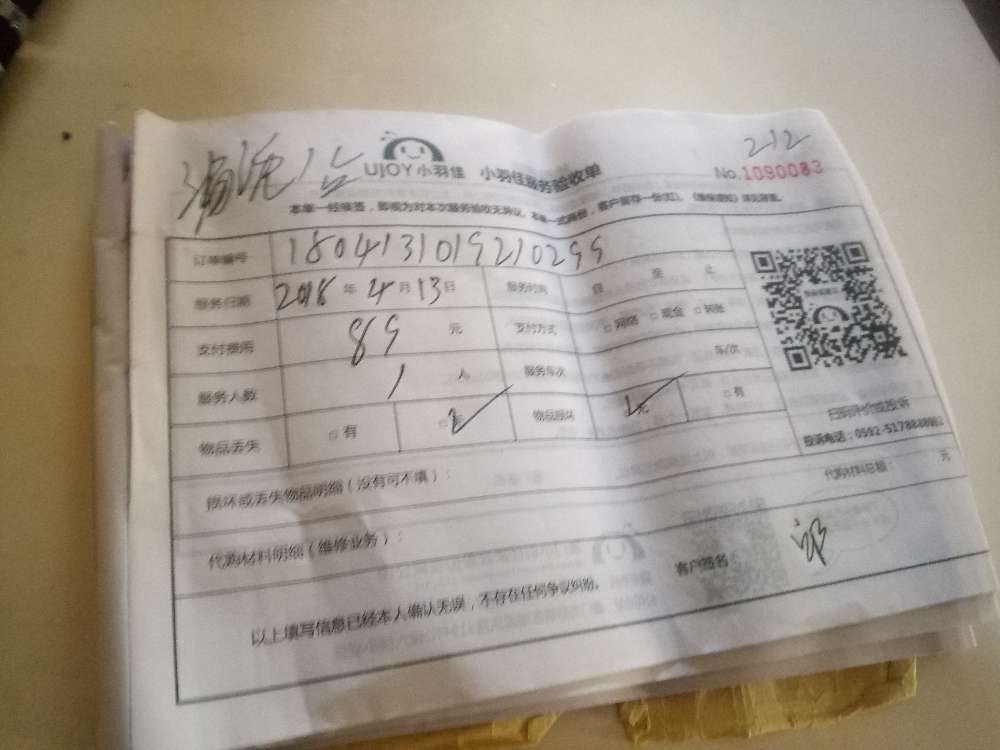 212
UJOY小羽佳 小羽佳服务验收单
No.1090083
本单一经签签，即视为对本次服务验收无确认。本单一式两份，客户留存一份
订单编号 1804131019210299
服务日期 2018 年 4 月 13 日 服务时间 自 至 止
支付费用 89 元 支付方式 □网络 □现金 □转账
服务人数 1 人 服务车次 车/次
物品丢失 □有 □无 物品损坏 □无 □有
扫码评价或投诉
投诉电话：0592-5178888
损坏或丢失物品明细（没有可不填）：
代购材料明细（维修业务）： 代购材料总额 元
以上填写信息已经本人确认无误，不存在任何争议纠纷。 客户签名：